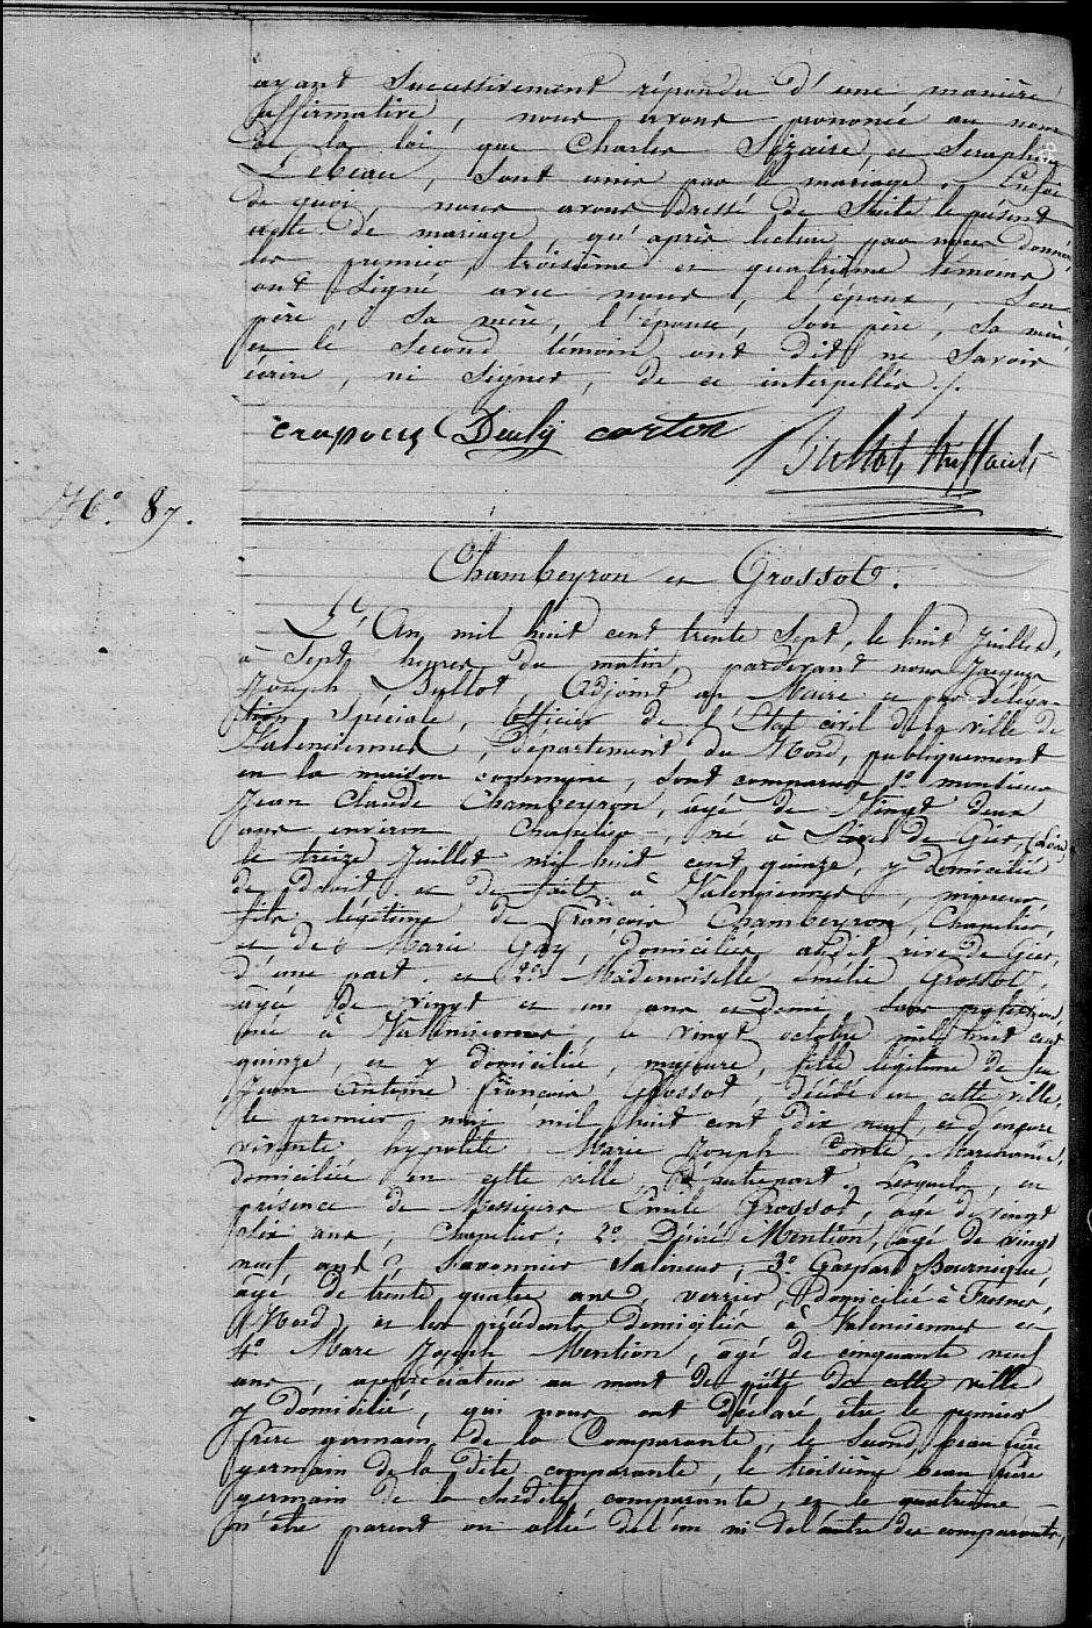 ayant Successivement répondu d'une manière
affirmative, nous avons prononcé au nom
de la loi que Charles Sizaire, et Seraphine
Lebeau, Sont unis par le mariage. En foi
de quoi, nous avons Dressé de Suite le présent
acte de mariage, qu'après lecture par nous donnée,
les premier, troisième et quatrième témoins
ont Signé avec nous, l'époux, Son
père, Sa mère, l'épouse, Son père, Sa mère,
et le Second témoin ont dit ne Savoir
écrire, ni Signer, de ce interpellés ./.
Deuly carton
Bultot
No. 87.
Chambeyron et Grossot.
L'An mil huit cent trente Sept, le huit Juillet,
à Sept heures du matin, pardevant nous Jacques
Joseph Bultot, Adjoint au Maire et par déléga-
tion Spéciale, Officier de l'Etat civil de la ville de
Valenciennes, département du Nord, publiquement
en la maison commune, Sont comparus 1o. monsieur
Jean Claude Chambeyron, âgé de Vingt deux
ans environ, Chapelier, né à Rive de Gier, (Loire)
le treize Juillet mil huit cent quinze, y domicilié
de droit et de fait à Valenciennes, mineur,
fils légitime de François Chambeyron, Chapelier,
et de Marie Gay, domiciliés audit rive de Gier,
d'une part. et 2o. Mademoiselle Emélie Grossot,
âgée de vingt et un ans et demi, Sans profession,
née à Valenciennes, le vingt octobre mil huit cent
quinze, et y domiciliée, majeure, fille légitime de feu
Jean Antoine François Grossot, décédé en cette ville,
le premier mai mil huit cent dix neuf, et d'encore
vivante hypolite Marie Joseph Comte, Marchande,
domiciliée en cette ville, d'autrepart. Lesquels, en
présence de Messieurs Emile Grossot, âgé de vingt
Six ans, Chapelier; 2o. Désiré Mention, âgé de vingt
neuf ans, Savonnier Salineur; 3o. Gaspard Bournique,
âgé de trente quatre ans, verrier, domicilié à Fresnes,
(Nord), et les précédents domiciliés à Valenciennes et
4o. Marc Joseph Mention, âgé de cinquante neuf
ans, appréciateur au mont de piété de cette ville
y domicilié, qui nous ont déclaré être le premier
frère germain de la Comparante, le Second beau frère
germain de la dite comparante, le troisième beau frère
germain de la Susdite comparante, et le quatrième
n'être parent ou allié de l'un ni de l'autre des comparants,